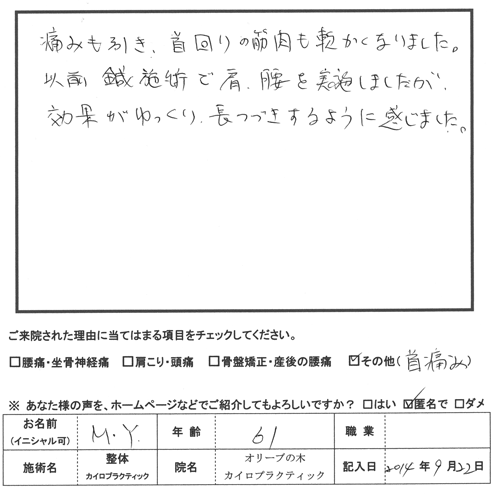 痛みも引き、首回りの筋肉も軟かくなりました。
以前 鍼施術で肩、腰を実施しましたが、
効果がゆっくり、長つづきするように感じました。
ご来院された理由に当てはまる項目をチェックしてください。
□腰痛・坐骨神経痛 □肩こり・頭痛 □骨盤矯正・産後の腰痛 ☑その他(首痛み)
※ あなた様の声を、ホームページなどでご紹介してもよろしいですか？ □はい ☑匿名で □ダメ
お名前 (イニシャル可) M.Y. 年齢 61 職業
施術名 整体 カイロプラクティック 院名 オリーブの木 カイロプラクティック 記入日 2014年9月22日